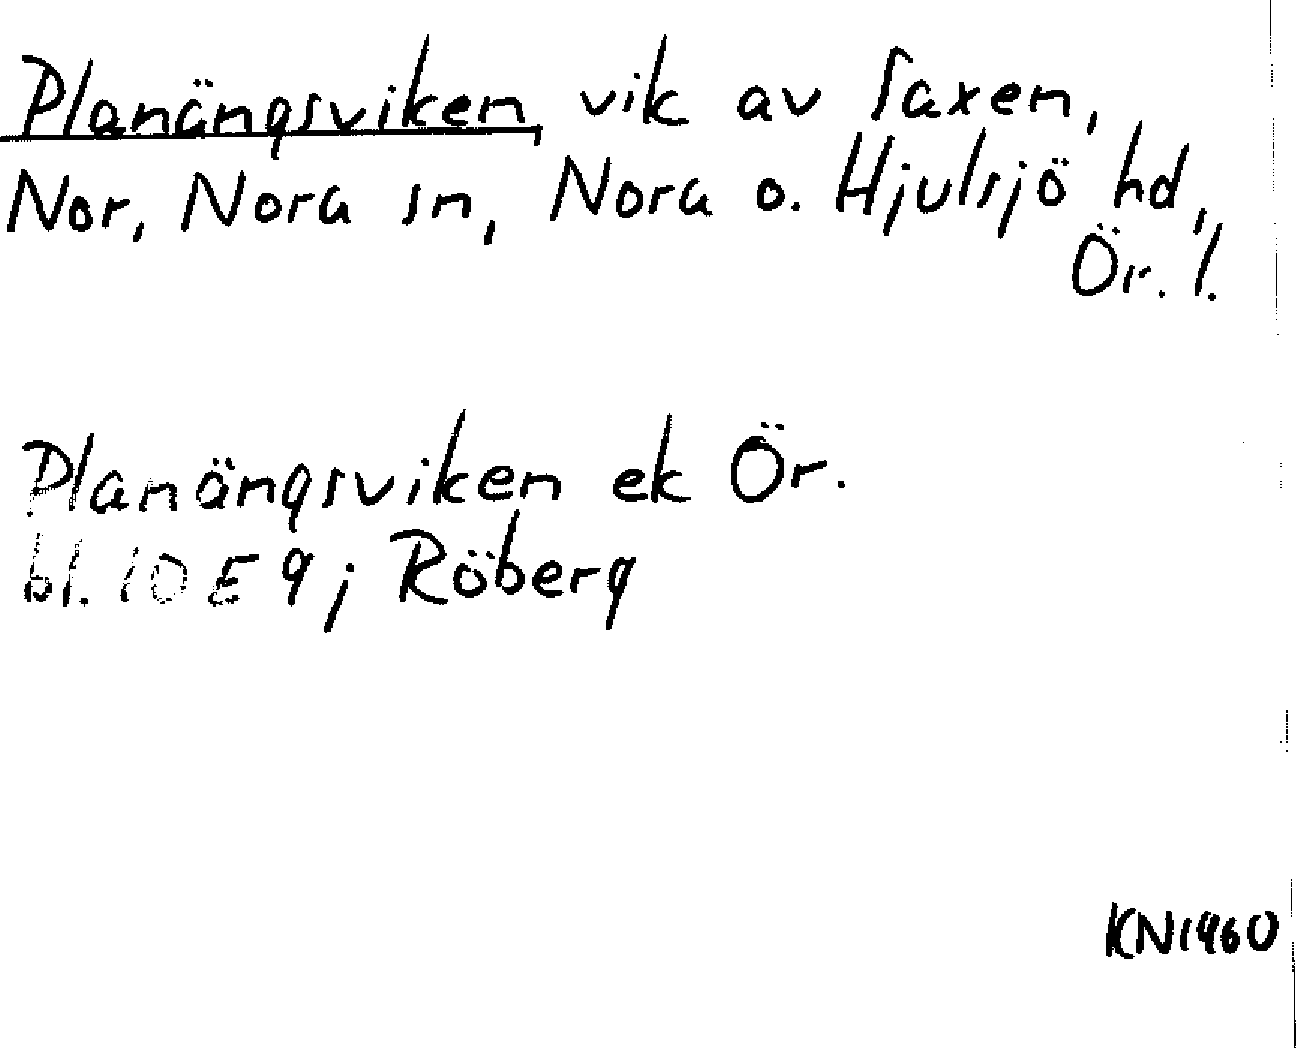 Planängsviken, vik av Saxen,
Nor, Nora sn, Nora o. Hjulsjö hd,
Ör. l.
Planängsviken ek Ör.
bl. 10 E 9 j Röberg
KN1960